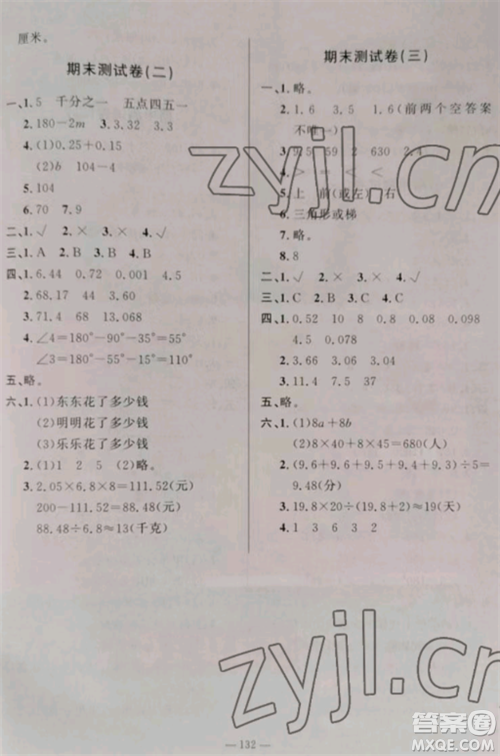 厘米。
期末测试卷(二)
一、1. 5 千分之一 五点四五一
2. 180-2m 3. 3.32 3.3
4. (1)0.25+0.15
(2)b 104-4
5. 104
6. 70 7. 9
二、1. √ 2. × 3. × 4. √
三、1. A 2. B 3. B 4. B
四、1. 6.44 0.72 0.001 4.5
2. 68.17 44
3. 71.4 13.8
4. ∠4=180°-90°-35°=55°
∠3=180°-55°-15°=110°
五、略。
六、1. (1)东东花了多少钱
(2)明明花了多少钱
(3)乐乐花了多少钱
2. (1)1 2 5 (2)略。
3. 2.05×6.8×8=111.52(元)
200-111.52=88.48(元)
88.48÷6.8≈13(千克)
期末测试卷(三)
一、1. 略。
2. 1.6 3.5 1.6(前两个空答案
不唯一)
3. 925 29 2 630 4.2
4. > = < <
5. 上 前(或左) 右
6. 三角形或梯
7. 略。
8. 8
二、1. √ 2. × 3. × 4. √
三、1. C 2. B 3. C
四、1. 0.52 10 8 0.8 0.098
4.5 0.078
2. 3.66 3.06 3.04
3. 11 7.5 24
五、略。
六、1. (1)8a+8b
(2)8×40+8×45=680(人)
2. (9.6+9.5+9.3+9.6+9.4)÷5=
9.48(分)
3. 19.8×20÷(19.8+2)≈19(天)
4. 1 3 3 2
— 132 —
zyjl.cn
zyjl.cn
答案圈
MXQE.COM